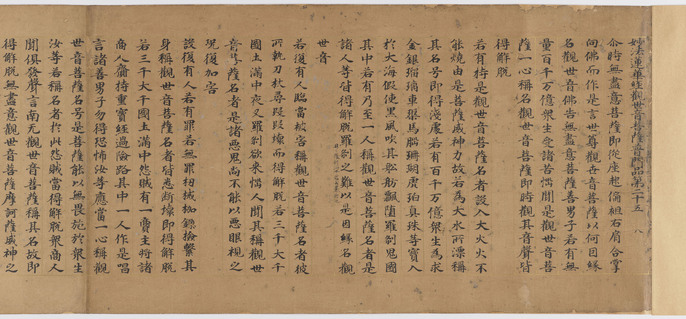 妙法蓮華經觀世音菩薩普門品第二十五 八
尒時無盡意菩薩即從座起偏袒右肩合掌
向佛而作是言世尊觀世音菩薩以何因緣
名觀世音佛告無盡意菩薩善男子若有無
量百千万億衆生受諸苦惱聞是觀世音菩
薩一心稱名觀世音菩薩即時觀其音聲皆
得解脫
若有持是觀世音菩薩名者設入大火火不
能燒由是菩薩威神力故若為大水所漂稱
其名号即得淺處若有百千万億衆生為求
金銀瑠璃車𤦲馬腦珊瑚虎珀真珠等寶入
於大海假使黒風吹其舩舫飄墮羅剎鬼國
其中若有乃至一人稱觀世音菩薩名者是
諸人等皆得解脫羅剎之難以是因緣名觀
世音
若復有人臨當被害稱觀世音菩薩名者彼
所執刀杖尋段段壞而得解脫若三千大千
國土滿中夜叉羅剎欲来惱人聞其稱觀世
音菩薩名者是諸惡鬼尚不能以惡眼視之
況復加害
設復有人若有罪若無罪杻械枷鎖檢繫其
身稱觀世音菩薩名者皆悉斷壞即得解脫
若三千大千國土滿中怨賊有一商主將諸
商人齎持重寶經過險路其中一人作是唱
言諸善男子勿得恐怖汝等應當一心稱觀
世音菩薩名号是菩薩能以無畏施於衆生
汝等若稱名者於此怨賊當得解脫衆商人
聞俱發聲言南无觀世音菩薩稱其名故即
得解脫無盡意觀世音菩薩摩訶薩威神之